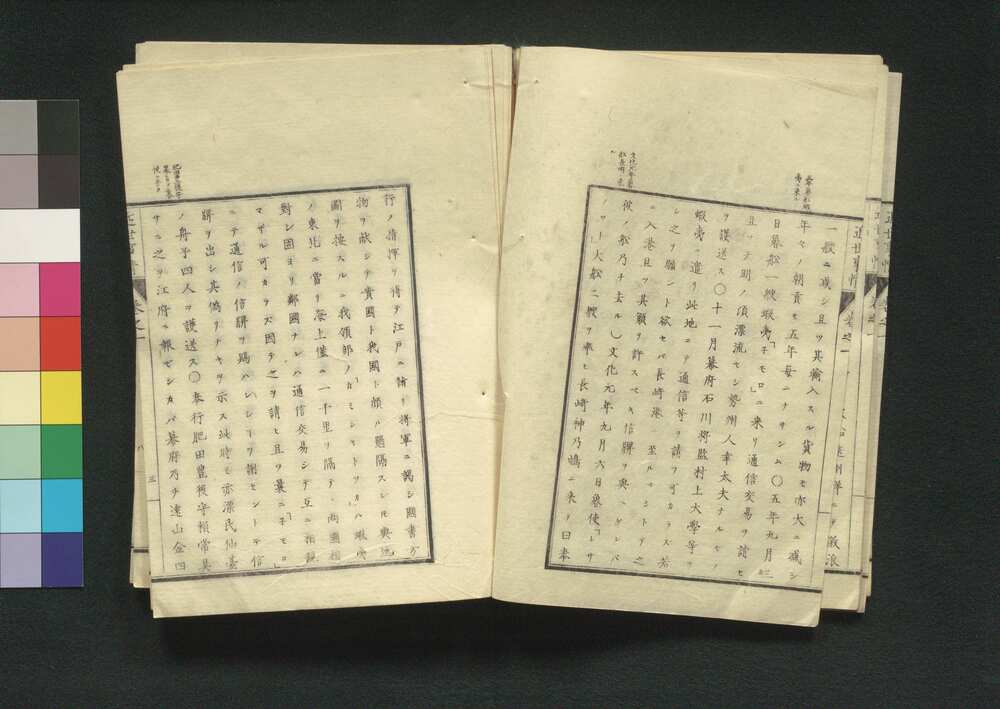 一般ニ減シ且ツ其輸入スル貨物モ亦大ニ減シ
年々ノ朝貢モ五年毎ニナサシム〇五年九月三
日暮舩一艘蝦夷「子モロ」ニ来リ通信交易ヲ請ヒ
且ツ天明ノ頃漂流セシ勢州人幸太夫ナルモノ
ヲ護送ス〇十一月幕府石川将監村上大學等ヲ
蝦夷ニ遣リ此地ニテ通信等ヲ請フ可カラス若
シ之ヲ願ハント欲セバ長崎港ニ至ルベシトテ之
ニ入港且ツ其願ヲ許スベキ信牌ヲ與ヘケレバ
彼ノ舩乃チ去ル〇文化元年九月六日魯使「レサ
ノワ」ト大舩ニ艘ヲ率ヒ長崎神乃嶋ニ来リ曰本
行ノ指揮ヲ得テ江戸ニ詣リ将軍ニ謁シ國書方
物ヲ献シテ貴國ト我國ト頗ル懸隔スレトモ輿地
圖ヲ按スルニ我領部ノ「カミシヤトツカ」ハ蝦夷
ノ東北ニ當リ登上僅ニ一千里ヲ隔テ両國相
對シ固ヨリ鄰國ナレハ通信交易シテ互ニ相親
マザル可カラズ因テ之ヲ請ヒ且ツ曩ニ「子モロ」
ニテ通信ノ信牌ヲ賜ハレシヲ謝セントテ信
牌ヲ出シ其偽リナキヲ示ス此時モ亦漂民仙臺
ノ舟子四人ヲ護送ス〇奉行肥田豊後守頼常具
サニ之ヲ江府ニ報ゼシカバ幕府乃チ遠山金四